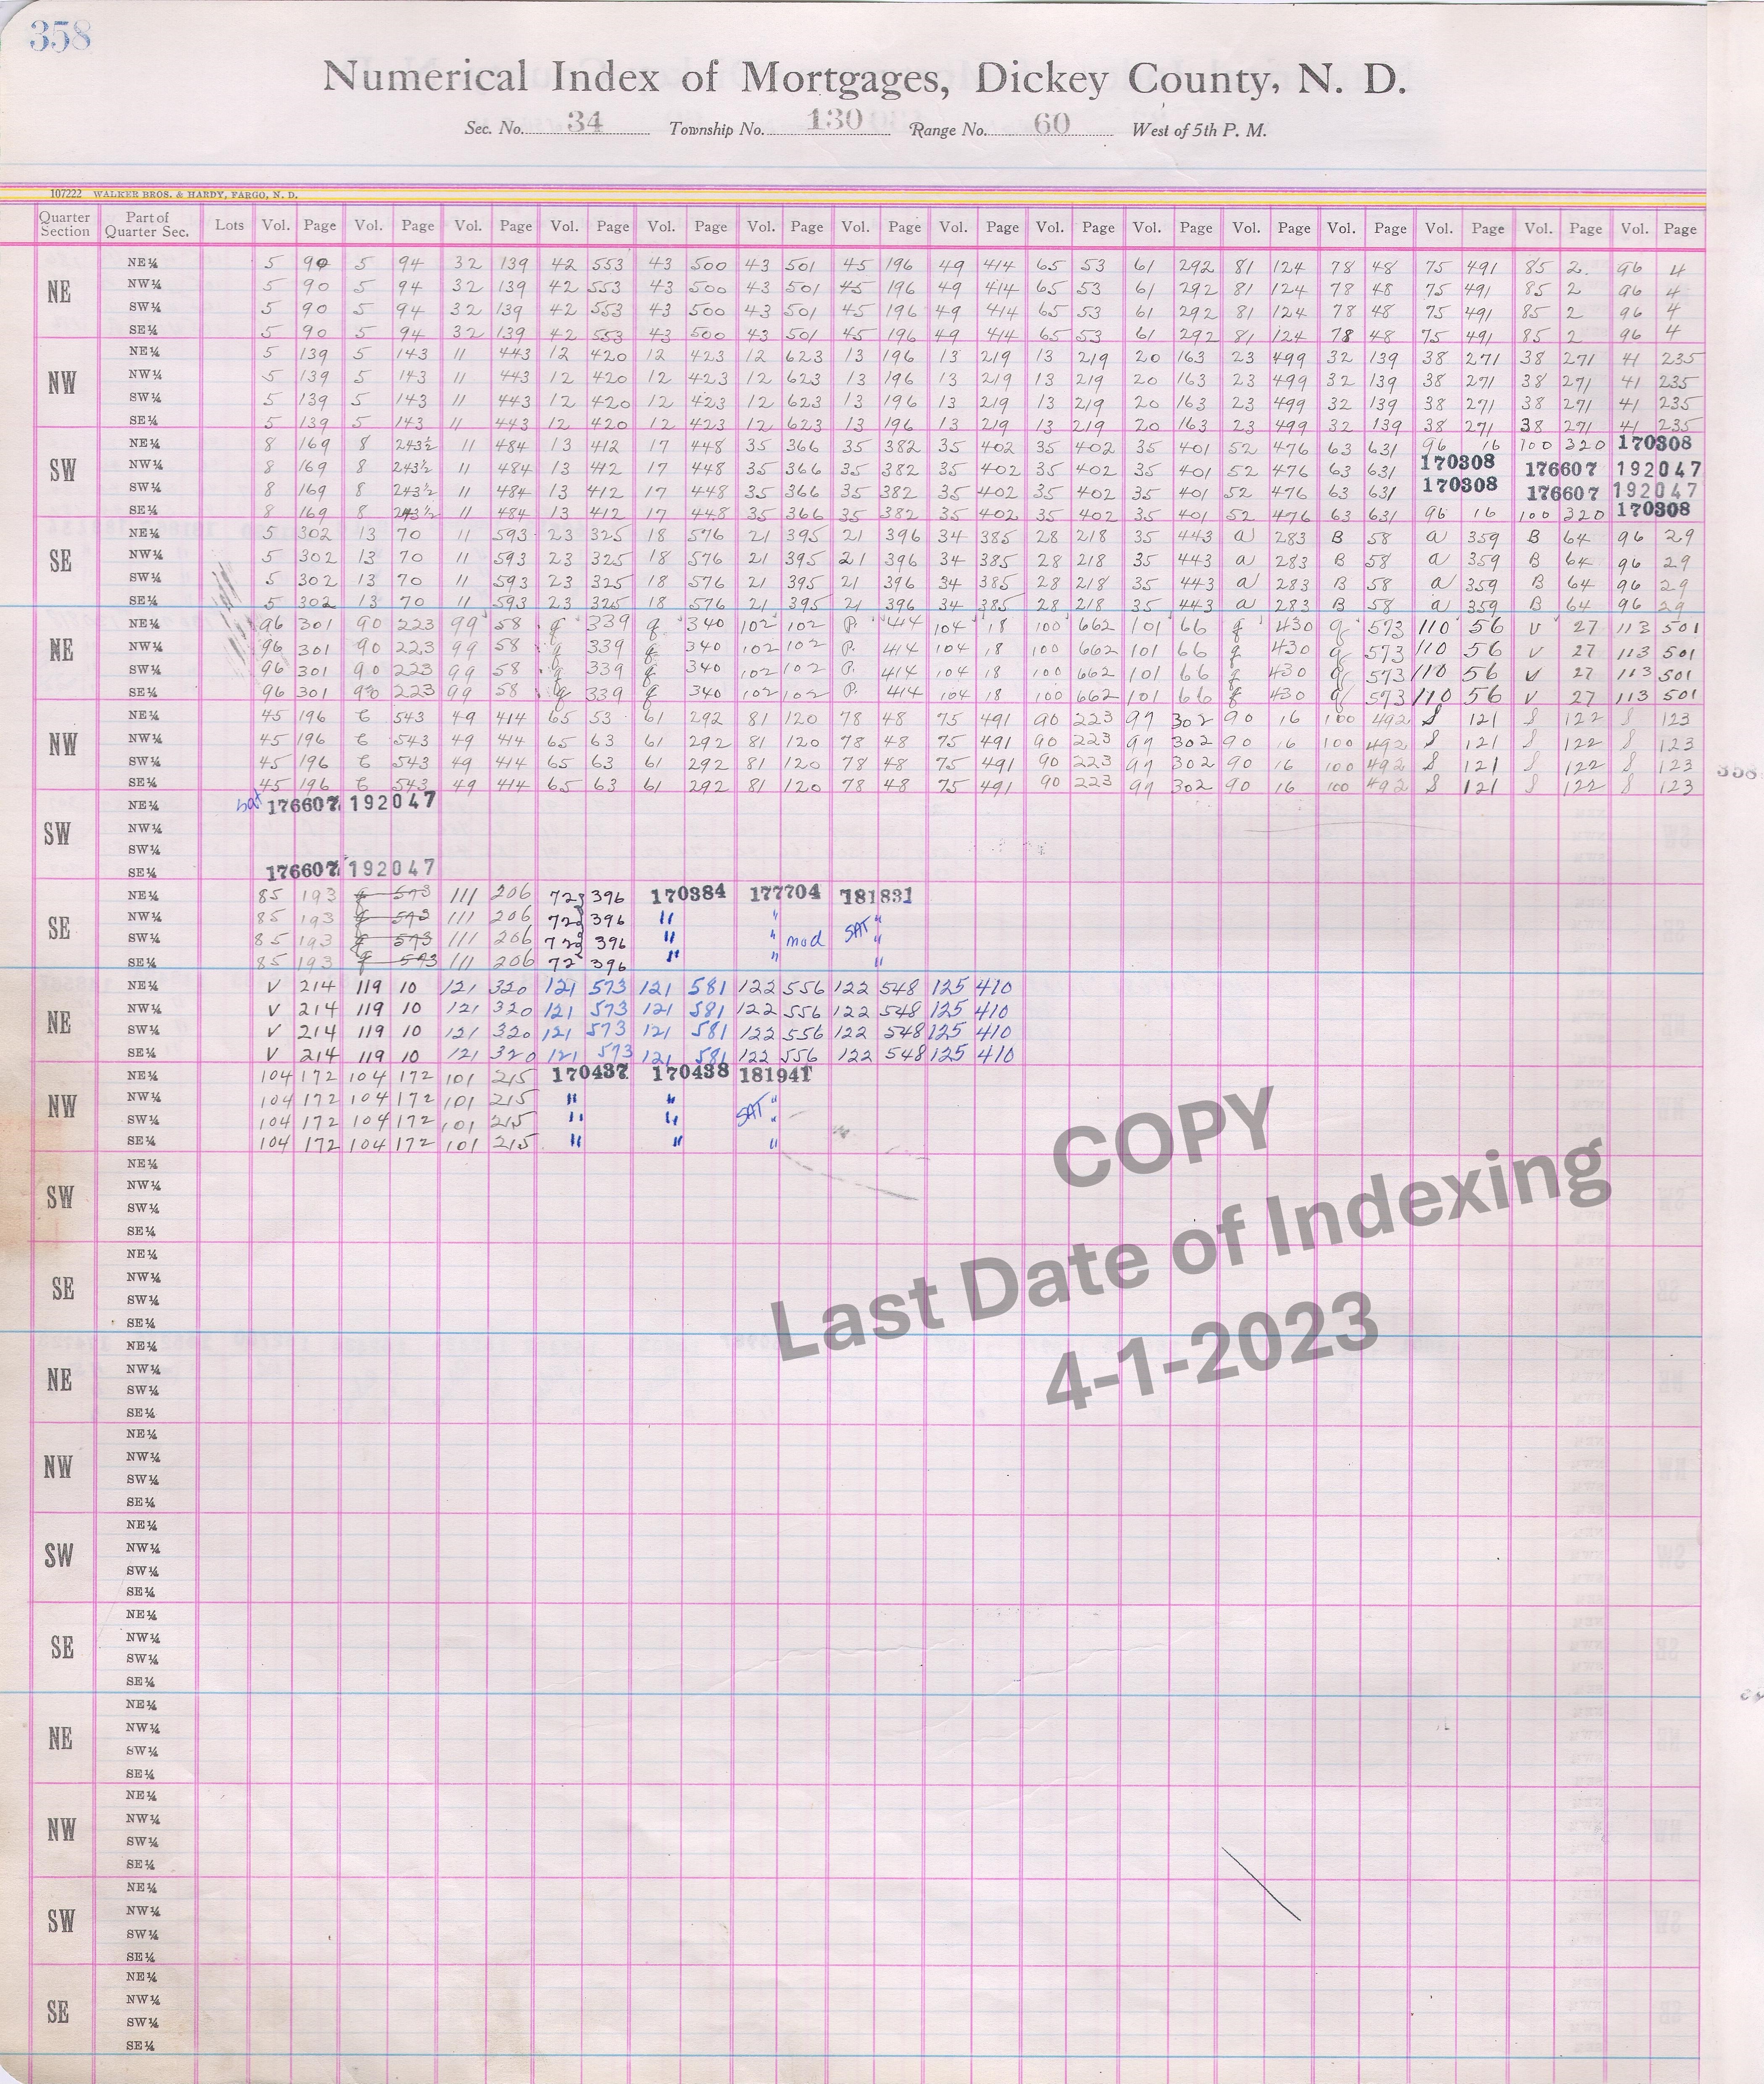 358
Numerical Index of Mortgages, Dickey County, N. D.
Sec. No. 34 Township No. 130 Range No. 60 West of 5th P. M.
107222 WALKER BROS. & HARDY, FARGO, N. D.
Quarter Section Part of Quarter Sec. Lots Vol. Page Vol. Page Vol. Page Vol. Page Vol. Page Vol. Page Vol. Page Vol. Page Vol. Page Vol. Page Vol. Page Vol. Page Vol. Page Vol. Page Vol. Page
NE
NE¼ 5 90 5 94 32 139 42 553 43 500 43 501 45 196 49 414 65 53 61 292 81 124 78 48 75 491 85 2 96 4
NW¼ 5 90 5 94 32 139 42 553 43 500 43 501 45 196 49 414 65 53 61 292 81 124 78 48 75 491 85 2 96 4
SW¼ 5 90 5 94 32 139 42 553 43 500 43 501 45 196 49 414 65 53 61 292 81 124 78 48 75 491 85 2 96 4
SE¼ 5 90 5 94 32 139 42 553 43 500 43 501 45 196 49 414 65 53 61 292 81 124 78 48 75 491 85 2 96 4
NW
NE¼ 5 139 5 143 11 443 12 420 12 423 12 623 13 196 13 219 13 219 20 163 23 499 32 139 38 271 38 271 41 235
NW¼ 5 139 5 143 11 443 12 420 12 423 12 623 13 196 13 219 13 219 20 163 23 499 32 139 38 271 38 271 41 235
SW¼ 5 139 5 143 11 443 12 420 12 423 12 623 13 196 13 219 13 219 20 163 23 499 32 139 38 271 38 271 41 235
SE¼ 5 139 5 143 11 443 12 420 12 423 12 623 13 196 13 219 13 219 20 163 23 499 32 139 38 271 38 271 41 235
SW
NE¼ 8 169 8 243½ 11 484 13 412 17 448 35 366 35 382 35 402 35 402 35 401 52 476 63 631 96 16 100 320 170308
NW¼ 8 169 8 243½ 11 484 13 412 17 448 35 366 35 382 35 402 35 402 35 401 52 476 63 631 170308 176607 192047
SW¼ 8 169 8 243½ 11 484 13 412 17 448 35 366 35 382 35 402 35 402 35 401 52 476 63 631 170308 176607 192047
SE¼ 8 169 8 243½ 11 484 13 412 17 448 35 366 35 382 35 402 35 402 35 401 52 476 63 631 96 16 100 320 170308
SE
NE¼ 5 302 13 70 11 593 23 325 18 576 21 395 21 396 34 385 28 218 35 443 a 283 B 58 a 359 B 64 96 29
NW¼ 5 302 13 70 11 593 23 325 18 576 21 395 21 396 34 385 28 218 35 443 a 283 B 58 a 359 B 64 96 29
SW¼ 5 302 13 70 11 593 23 325 18 576 21 395 21 396 34 385 28 218 35 443 a 283 B 58 a 359 B 64 96 29
SE¼ 5 302 13 70 11 593 23 325 18 576 21 395 21 396 34 385 28 218 35 443 a 283 B 58 a 359 B 64 96 29
NE
NE¼ 96 301 90 223 99 58 q 339 q 340 102 102 P. 414 104 18 100 662 101 66 q 430 q 573 110 56 V 27 113 501
NW¼ 96 301 90 223 99 58 q 339 q 340 102 102 P. 414 104 18 100 662 101 66 q 430 q 573 110 56 V 27 113 501
SW¼ 96 301 90 223 99 58 q 339 q 340 102 102 P. 414 104 18 100 662 101 66 q 430 q 573 110 56 V 27 113 501
SE¼ 96 301 90 223 99 58 q 339 q 340 102 102 P. 414 104 18 100 662 101 66 q 430 q 573 110 56 V 27 113 501
NW
NE¼ 45 196 C 543 49 414 65 53 61 292 81 120 78 48 75 491 90 223 99 302 90 16 100 492 S 121 S 122 S 123
NW¼ 45 196 C 543 49 414 65 63 61 292 81 120 78 48 75 491 90 223 99 302 90 16 100 492 S 121 S 122 S 123
SW¼ 45 196 C 543 49 414 65 63 61 292 81 120 78 48 75 491 90 223 99 302 90 16 100 492 S 121 S 122 S 123
SE¼ 45 196 C 543 49 414 65 63 61 292 81 120 78 48 75 491 90 223 99 302 90 16 100 492 S 121 S 122 S 123
SW
NE¼ Sat 176607 192047
NW¼
SW¼
SE¼ 176607 192047
SE
NE¼ 85 193 q 573 111 206 72 396 170384 177704 181831
NW¼ 85 193 q 573 111 206 72 396 " " "
SW¼ 85 193 q 573 111 206 72 396 " " mod SAT "
SE¼ 85 193 q 573 111 206 72 396 " " "
NE
NE¼ V 214 119 10 121 320 121 573 121 581 122 556 122 548 125 410
NW¼ V 214 119 10 121 320 121 573 121 581 122 556 122 548 125 410
SW¼ V 214 119 10 121 320 121 573 121 581 122 556 122 548 125 410
SE¼ V 214 119 10 121 320 121 573 121 581 122 556 122 548 125 410
NW
NE¼ 104 172 104 172 101 215 170437 170438 181941
NW¼ 104 172 104 172 101 215 " " "
SW¼ 104 172 104 172 101 215 " " SAT "
SE¼ 104 172 104 172 101 215 " " "
SW
NE¼
NW¼
SW¼
SE¼
SE
NE¼
NW¼
SW¼
SE¼
NE
NE¼
NW¼
SW¼
SE¼
NW
NE¼
NW¼
SW¼
SE¼
SW
NE¼
NW¼
SW¼
SE¼
SE
NE¼
NW¼
SW¼
SE¼
NE
NE¼
NW¼
SW¼
SE¼
NW
NE¼
NW¼
SW¼
SE¼
SW
NE¼
NW¼
SW¼
SE¼
SE
NE¼
NW¼
SW¼
SE¼
COPY
Last Date of Indexing
4-1-2023